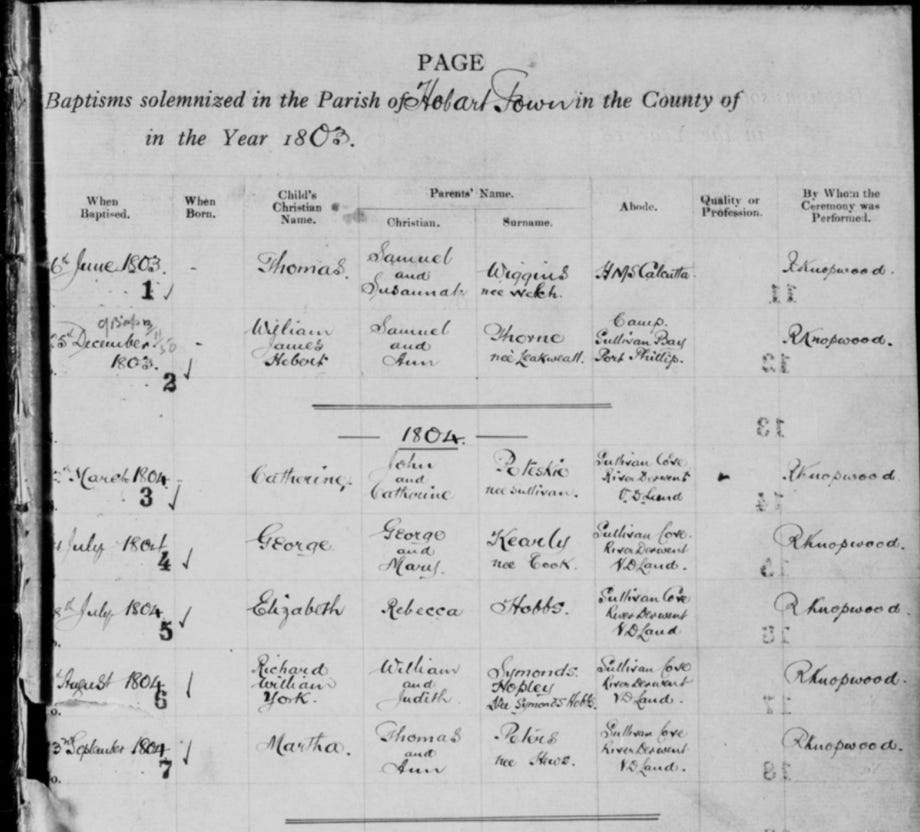 PAGE
Baptisms solemnized in the Parish of Hobart Town in the County of
in the Year 1803.
When Baptised.
When Born.
Child's Christian Name.
Parents' Name.
Christian.
Surname.
Abode.
Quality or Profession.
By Whom the Ceremony was Performed.
June 1803.
1
-
Thomas.
Samuel
and
Susannah
Wiggins
nee Welch.
HMS Calcutta.
R Knopwood.
December
1803.
2
-
William
James
Hobert
Samuel
and
Ann
Thorne
nee Leakweall.
Camp.
Sullivan Bay
Port Phillip.
R Knopwood.
1804.
March 1804
3
Catherine,
John
and
Catherine
Poteskie
nee Sullivan.
Sullivan Cove
River Derwent
V. D. Land
R Knopwood
July 1804
4
George
George
and
Mary.
Kearly
nee Cook.
Sullivan Cove.
River Derwent
V D Land.
R Knopwood.
July 1804
5
Elizabeth
Rebecca
Hobbs.
Sullivan Cove
River Derwent
V D Land
R Knopwood.
August 1804
6
Richard
William
York.
William
and
Judith.
Symonds.
Hopley
Nee Symonds Hobbs.
Sullivan Cove
River Derwent
V D Land.
R Knopwood.
September 1804
7
Martha.
Thomas
and
Ann
Peters
nee Hews.
Sullivan Cove
River Derwent
V D Land.
R Knopwood.